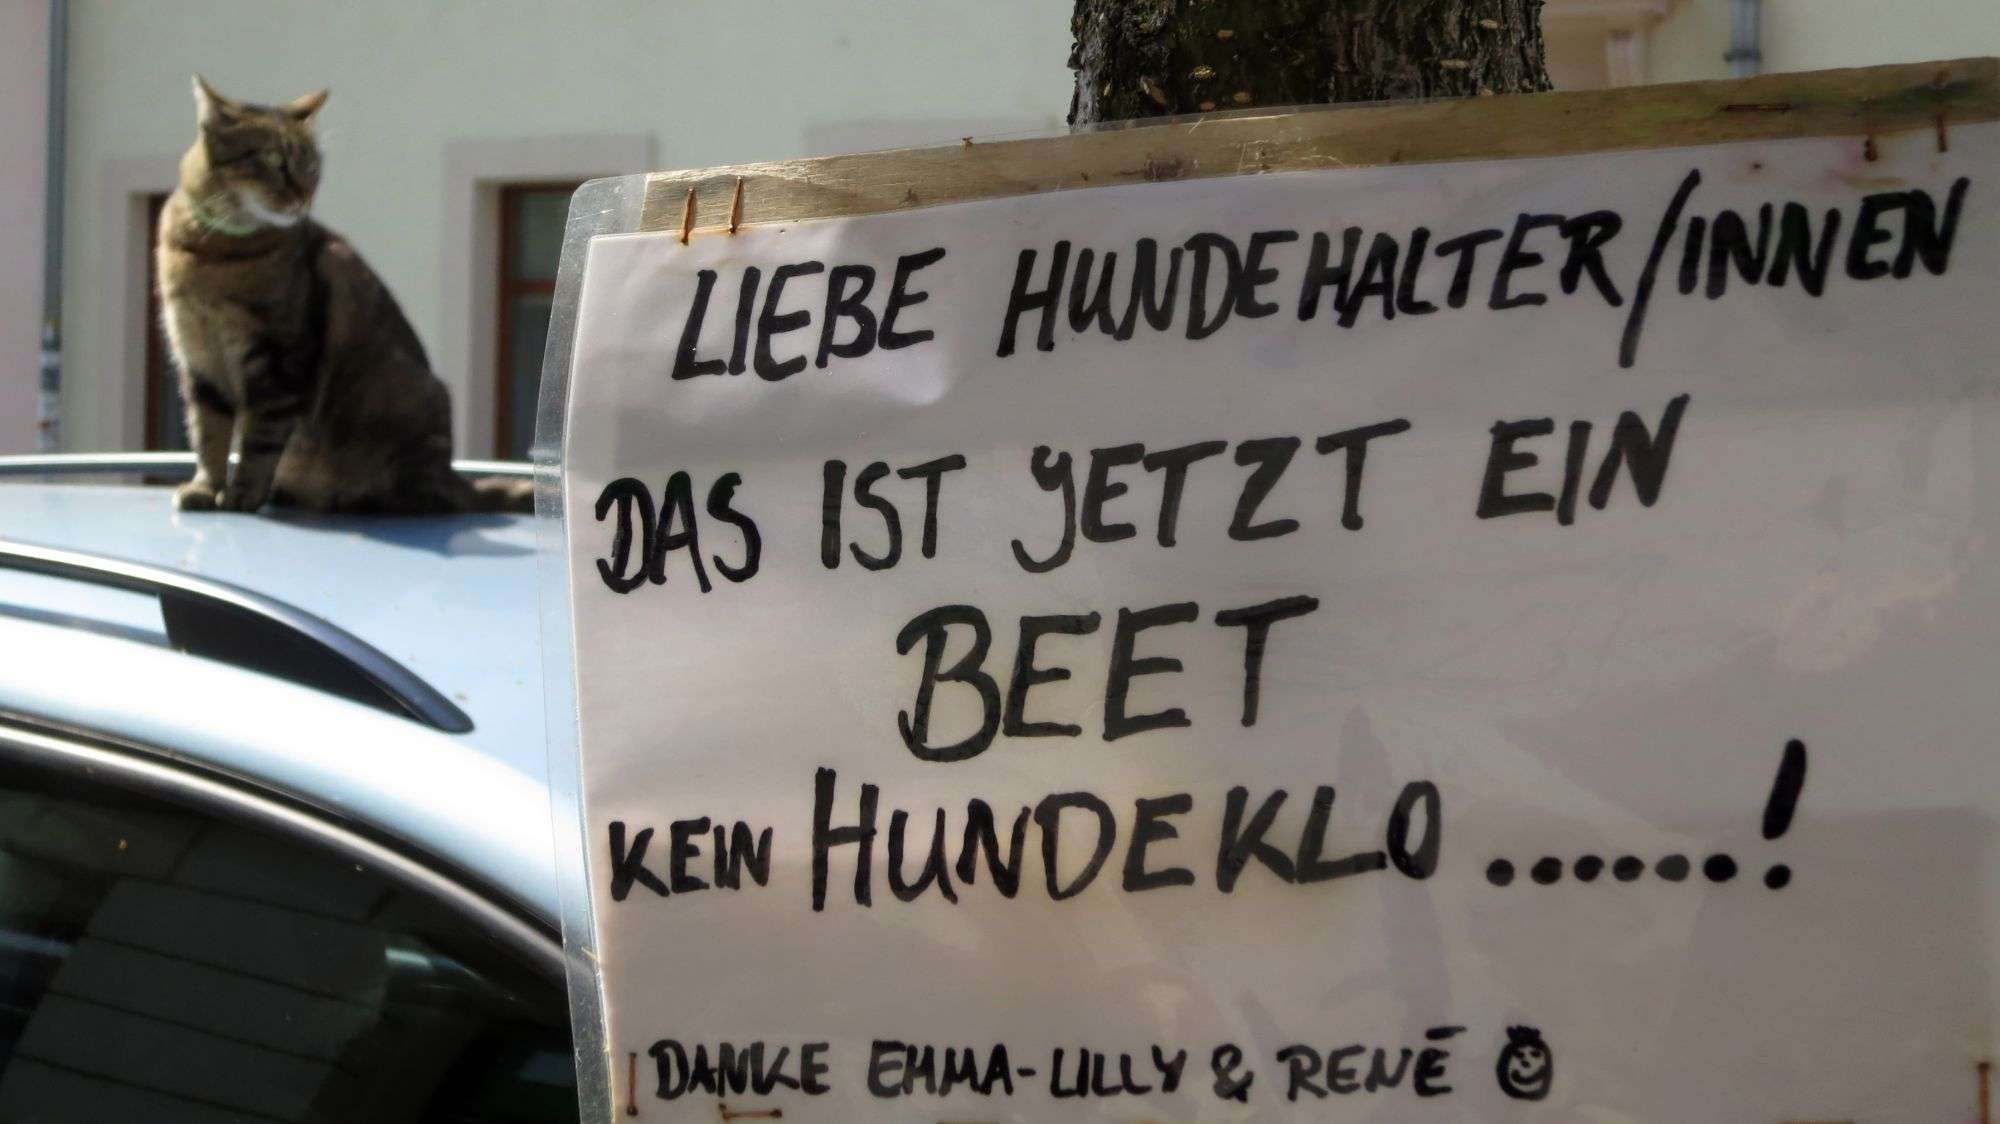 LIEBE HUNDEHALTER/INNEN
DAS IST JETZT EIN
BEET
KEIN HUNDEKLO ......!
DANKE EMMA-LILLY & RENÉ